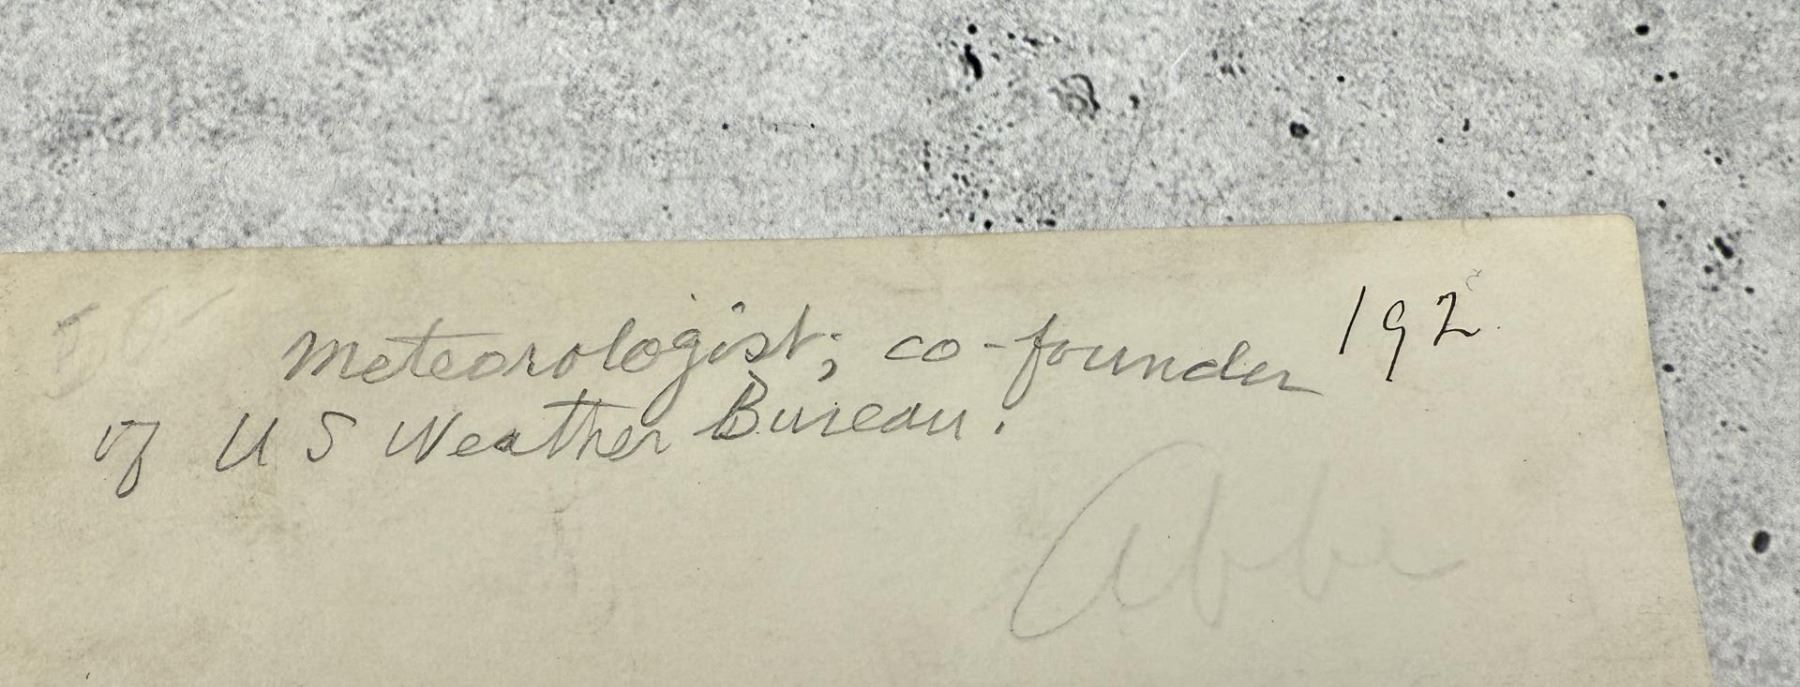 192
Meteorologist; co-founder
of U S Weather Bureau.
Abbe